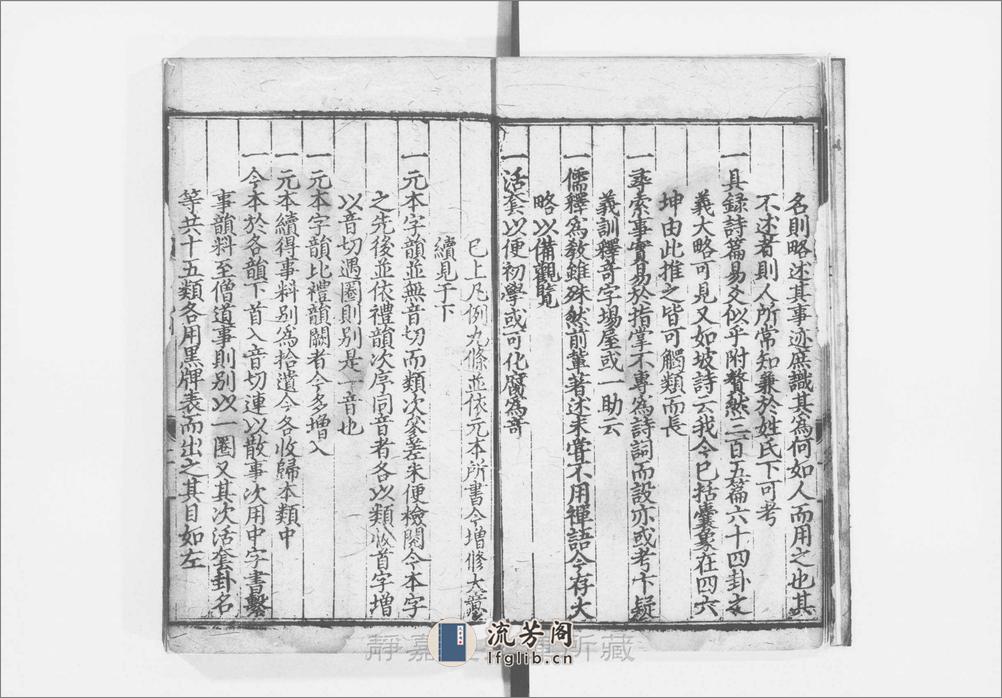 名則略述其事迹庶識其爲何如人而用之也其
不述者則人所常知兼於姓氏下可考
一具録詩篇易爻似乎附贅然三百五篇六十四卦文
義大略可見又如坡詩云我今已括囊象在四六
坤由此推之皆可觸類而長
一尋索事實易於指掌不專爲詩詞而設亦或考卞疑
義訓釋奇字場屋或一助云
一儒釋爲教雖殊然前軰著述未甞不用禪語今存大
略以備觀覽
一活套以便初學或可化腐爲奇
已上凡例九條並依元本所書今增修大
續見于下
一元本字韻並無音切而類次叅差未便檢閱今本字
之先後並依禮韻次序同音者各以類收首字增
以音切遇圈則别是一音也
一元本字韻比禮韻闕者今多增入
一元本續得事料别爲拾遺今各收歸本類中
一今本於各韻下首入音切連以散事次用中字書繫
事韻料至僧道事則别以一圈又其次活套卦名
等共十五類各用黑牌表而出之其目如左
流芳阁
lfglib.cn
靜嘉 所藏